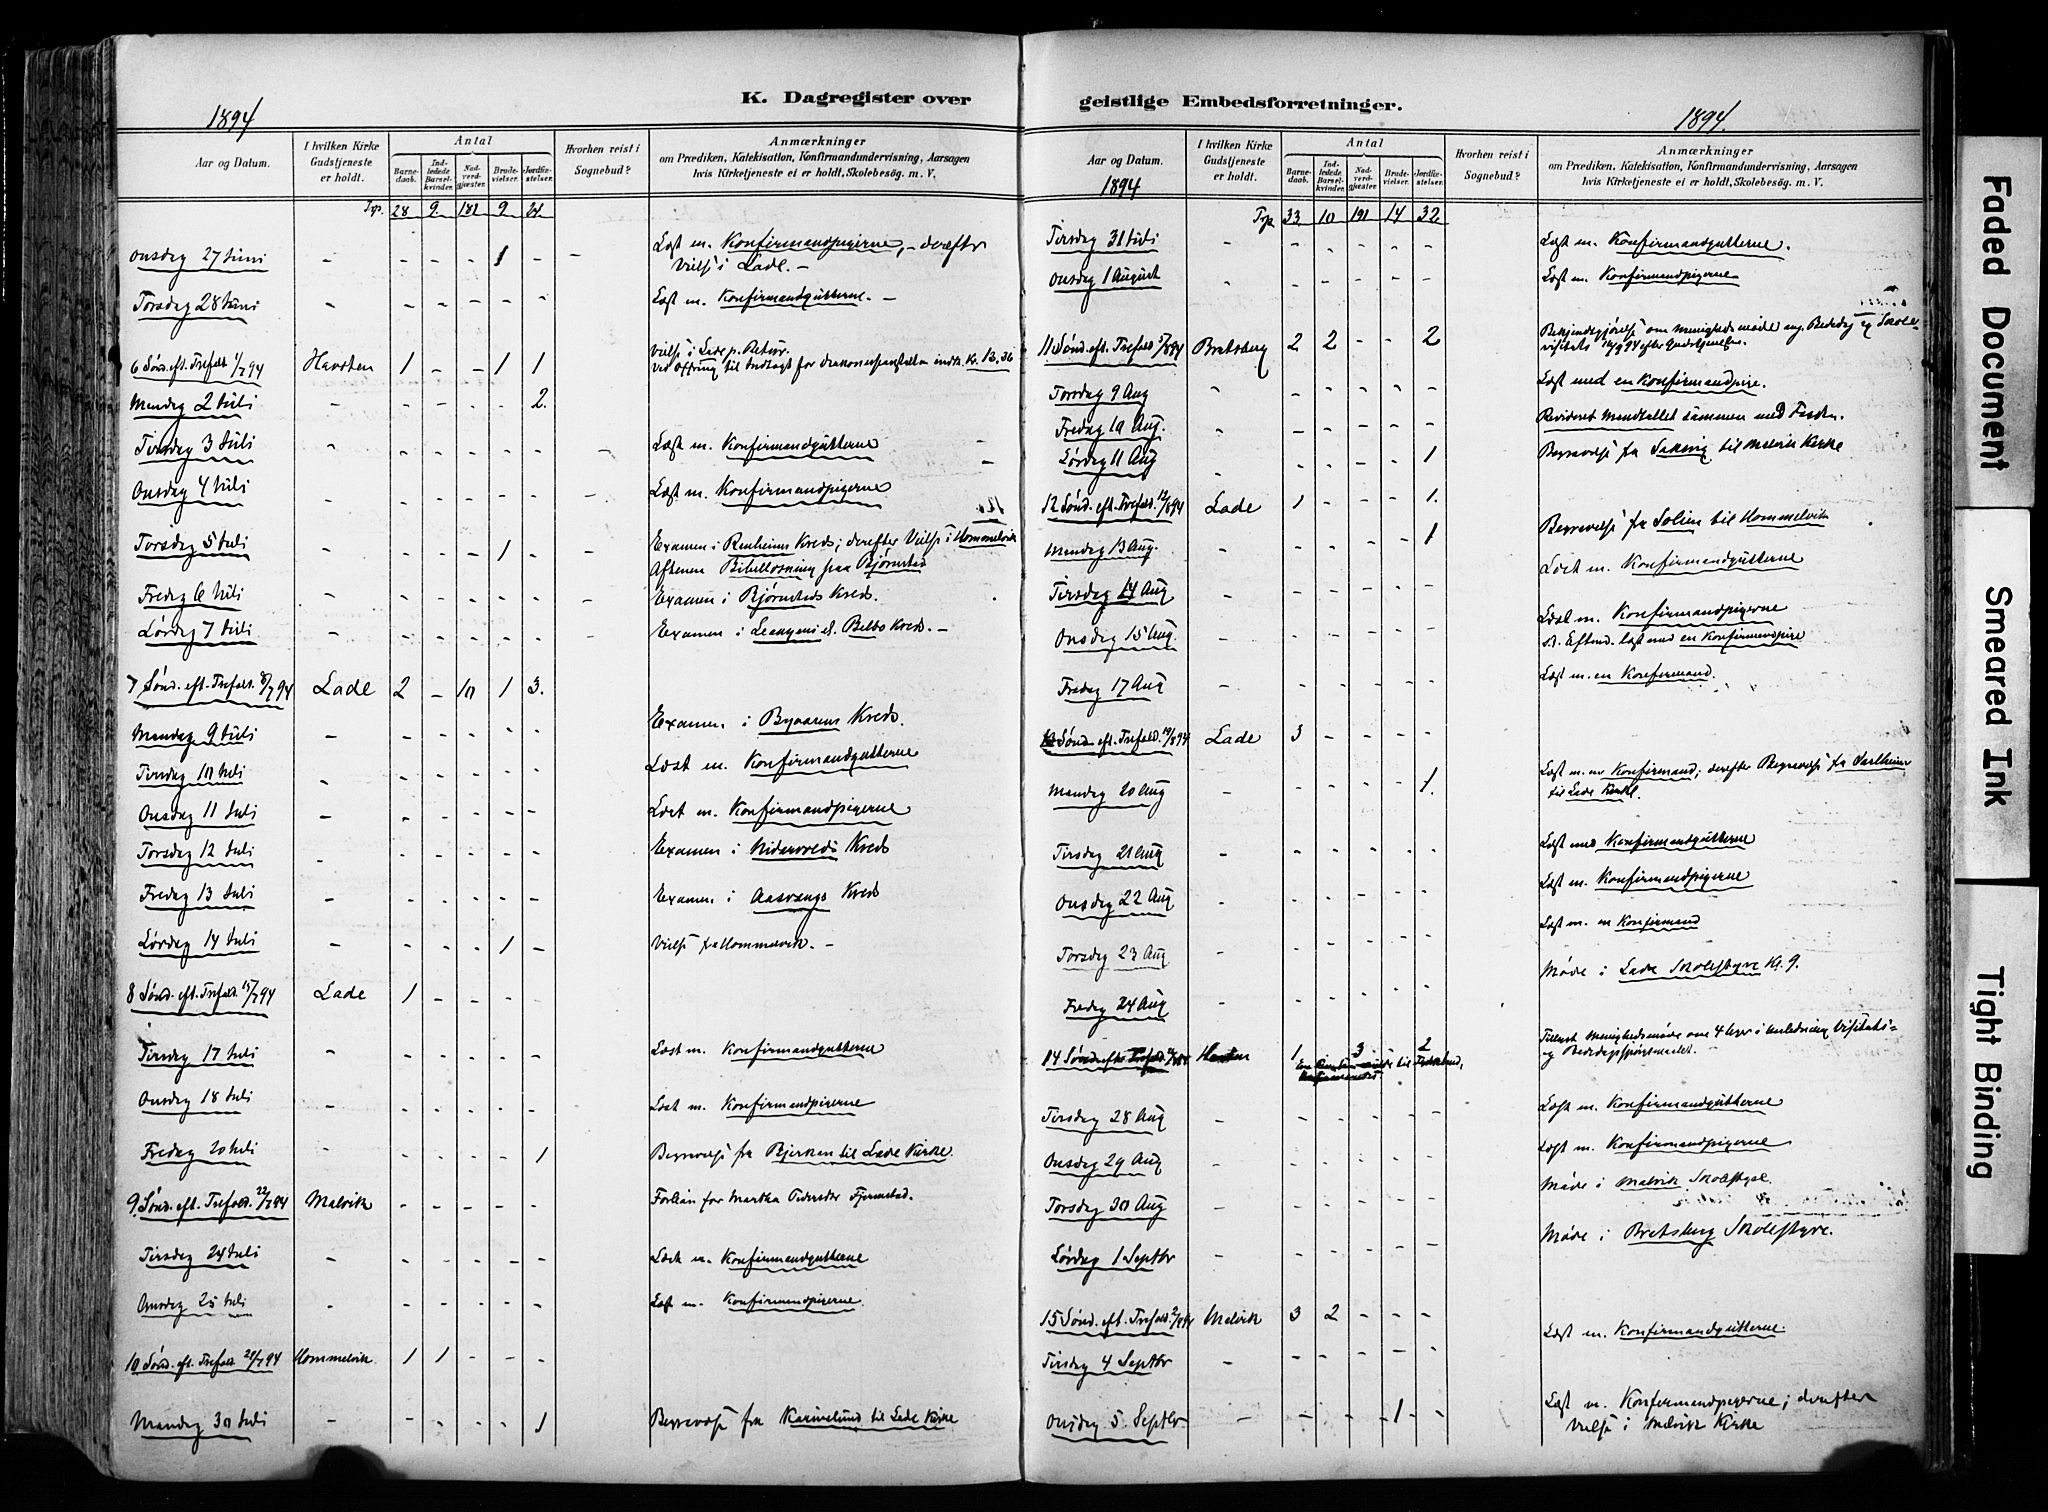 K. Dagregister over
1894
Aar og Datum.
I hvilken Kirke Gudstjeneste er holdt.
Antal
Barnedaab. Indledede Barselkvinder. Nadverdgjæster. Brudevielser. Jordfæstelser.
Hvorhen reist i Sognebud?
Anmærkninger
om Prædiken, Katekisation, Konfirmandundervisning, Aarsagen hvis Kirketjeneste ei er holdt, Skolebesøg. m. V.
Trp. 28 9 181 9
Onsdag 27 Juni - - - - 1 - - Læst m. Konfirmandpigerne, - derefter
Vielse i Lade. -
Torsdag 28 Juni - - - - - - Læst m. Konfirmandgutterne. -
6 Sønd. eft. Trefold. 1/7 94 Havsten 1 - - 1 1 Vielse i Lade p. Retur.
Ved Offring til Indtægt for indk. Kr. 13,36
Mandag 2 Juli - - - - - 2.
Tirsdag 3 Juli - - - - - - - Læst m. Konfirmandgutterne
Onsdag 4 Juli - - - - - - - Læst m. Konfirmandpigerne
Torsdag 5 Juli - - - - 1 - - Examen i Renheims Kreds; derefter Vielse i Hommelvik
Aftenen Bibellæsning paa Bjørnstad
Fredag 6 Juli - - - - - - - Examen i Bjørnstads Kreds.
Lørdag 7 Juli - - - - - - - Examen i Leangens el. Belbs Kreds. -
7 Sønd. eft. Trefold. 8/7 94 Lade 2 - 10 1 3.
Mandag 9 Juli - - - - - - Examen i Byaasens Kreds.
Tirsdag 10 Juli - - - - - - Læst m. Konfirmandgutterne
Onsdag 11 Juli - - - - - - Læst m. Konfirmandpigerne
Torsdag 12 Juli - - - - - - Examen i Kreds
Fredag 13 Juli - - - - - - Examen i Aasvangs Kreds
Lørdag 14 Juli - - - - 1 - Vielse fra Hommelvik. -
8 Sønd. eft. Trefold. 15/7 94 Lade 1 - - - -
Tirsdag 17 Juli - - - - - - Læst m. Konfirmandgutterne
Onsdag 18 Juli - - - - - - Læst m. Konfirmandpigerne
Fredag 20 Juli - - - - - 1 Begravelse fra Bjerken til Lade Kirke
9 Sønd. eft. Trefold. 22/7 94 Malvik - - - - - Forlian for Martha Pedersdtr Fjermstad.
Tirsdag 24 Juli - - - - - - Læst m. Konfirmandgutterne
Onsdag 25 Juli - - - - - - Læst m. Konfirmandpigerne.
10 Sønd. eft. Trefold. 29/7 94 Hommelvik 1 1 - - -
Mandag 30 Juli - - - - - 1 Begravelse fra Karinelund til Lade Kirke
geistlige Embedsforretninger.
1894.
Aar og Datum.
1894
I hvilken Kirke Gudstjeneste er holdt.
Antal
Barnedaab. Indledede Barselkvinder. Nadverdgjæster. Brudevielser. Jordfæstelser.
Hvorhen reist i Sognebud?
Anmærkninger
om Prædiken, Katekisation, Konfirmandundervisning, Aarsagen hvis Kirketjeneste ei er holdt, Skolebesøg. m. V.
Trp 33 10 191 14 32
Tirsdag 31 Juli - - - - - - Læst m. Konfirmandgutterne.
Onsdag 1 August - - - - - - Læst m. Konfirmandpigerne
11 Sønd. eft. Trefold. 5/8 94 Bratsberg 2 2 - - 2 Bekjendtgjørelse om Menighedsmøde ang. Bededag og Skole-
visitats 14/9 94 efter Gudstjenesten.
Torsdag 9 Aug - - - - - - Læst med en Konfirmandpige.
Fredag 10 Aug. - - - - - - Revideret Mandtallet sammen med
Lørdag 11 Aug - - - - - 1 Begravelse fra Saxvig til Malvik Kirke
12 Sønd. eft. Trefold. 12/8 94 Lade 1 - - - 1.
Mandag 13 Aug. - - - - - 1 Begravelse fra Solien til Hommelvik
Tirsdag 14 Aug - - - - - - Læst m. Konfirmandgutterne
Onsdag 15 Aug. - - - - - - Læst m. Konfirmandpigerne
s. Eftmd. læst med en Konfirmandpige
Fredag 17 Aug - - - - - - Læst m. en Konfirmand.
Sønd. eft. Trefold. 19/8 94 Lade 3 - - - -
Mandag 20 Aug - - - - - 1. Læst m. en Konfirmand; derefter Begravelse fra Carlheim
til Lade Kirke.
Tirsdag 21 Aug - - - - - - Læst med Konfirmandgutterne
Onsdag 22 Aug - - - - - - Læst m. Konfirmandpigerne
Torsdag 23 Aug - - - - - - Læst m. en Konfirmand
Fredag 24 Aug - - - - - - Møde i Lade Skolestyre Kl. 9.
14 Sønd. efter Trefold. Havsten 1 3 2 Menighedsmøde om i Anledning Visitats-
og Bededagsspørsmaalet.
Tirsdag 28 Aug - - - - - Læst m. Konfirmandgutterne
Onsdag 29 Aug - - - - - - Læst m. Konfirmandpigerne
Torsdag 30 Aug - - - - - - Møde i Malvik Skolestyre.
Lørdag 1 Septbr - - - - - - Møde i Bratsberg Skolestyre.
15 Sønd. eft. Trefold. 2/9 94 Malvik 3 2 - - -
Tirsdag 4 Septbr - - - - - - Læst m. Konfirmandgutterne.
Onsdag 5. Septbr - - - - 1 - Læst m. Konfirmandpigerne; derefter
Vielse i Malvik Kirke
Faded Document
Smeared Ink
Tight Binding